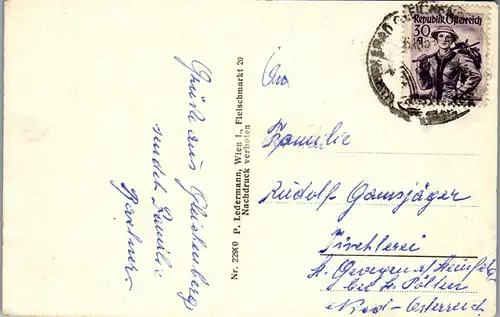 Grüße aus Gleichenberg
sendet Familie
Republik Österreich
30
g
Nr. 22900 P. Ledermann, Wien I., Fleischmarkt 20
Nachdruck verboten
An
Familie
Rudolf Gamsjäger
Tischlerei
St. Georgen a/ Steinfeld
bei St. Pölten
Nied.-Österreich